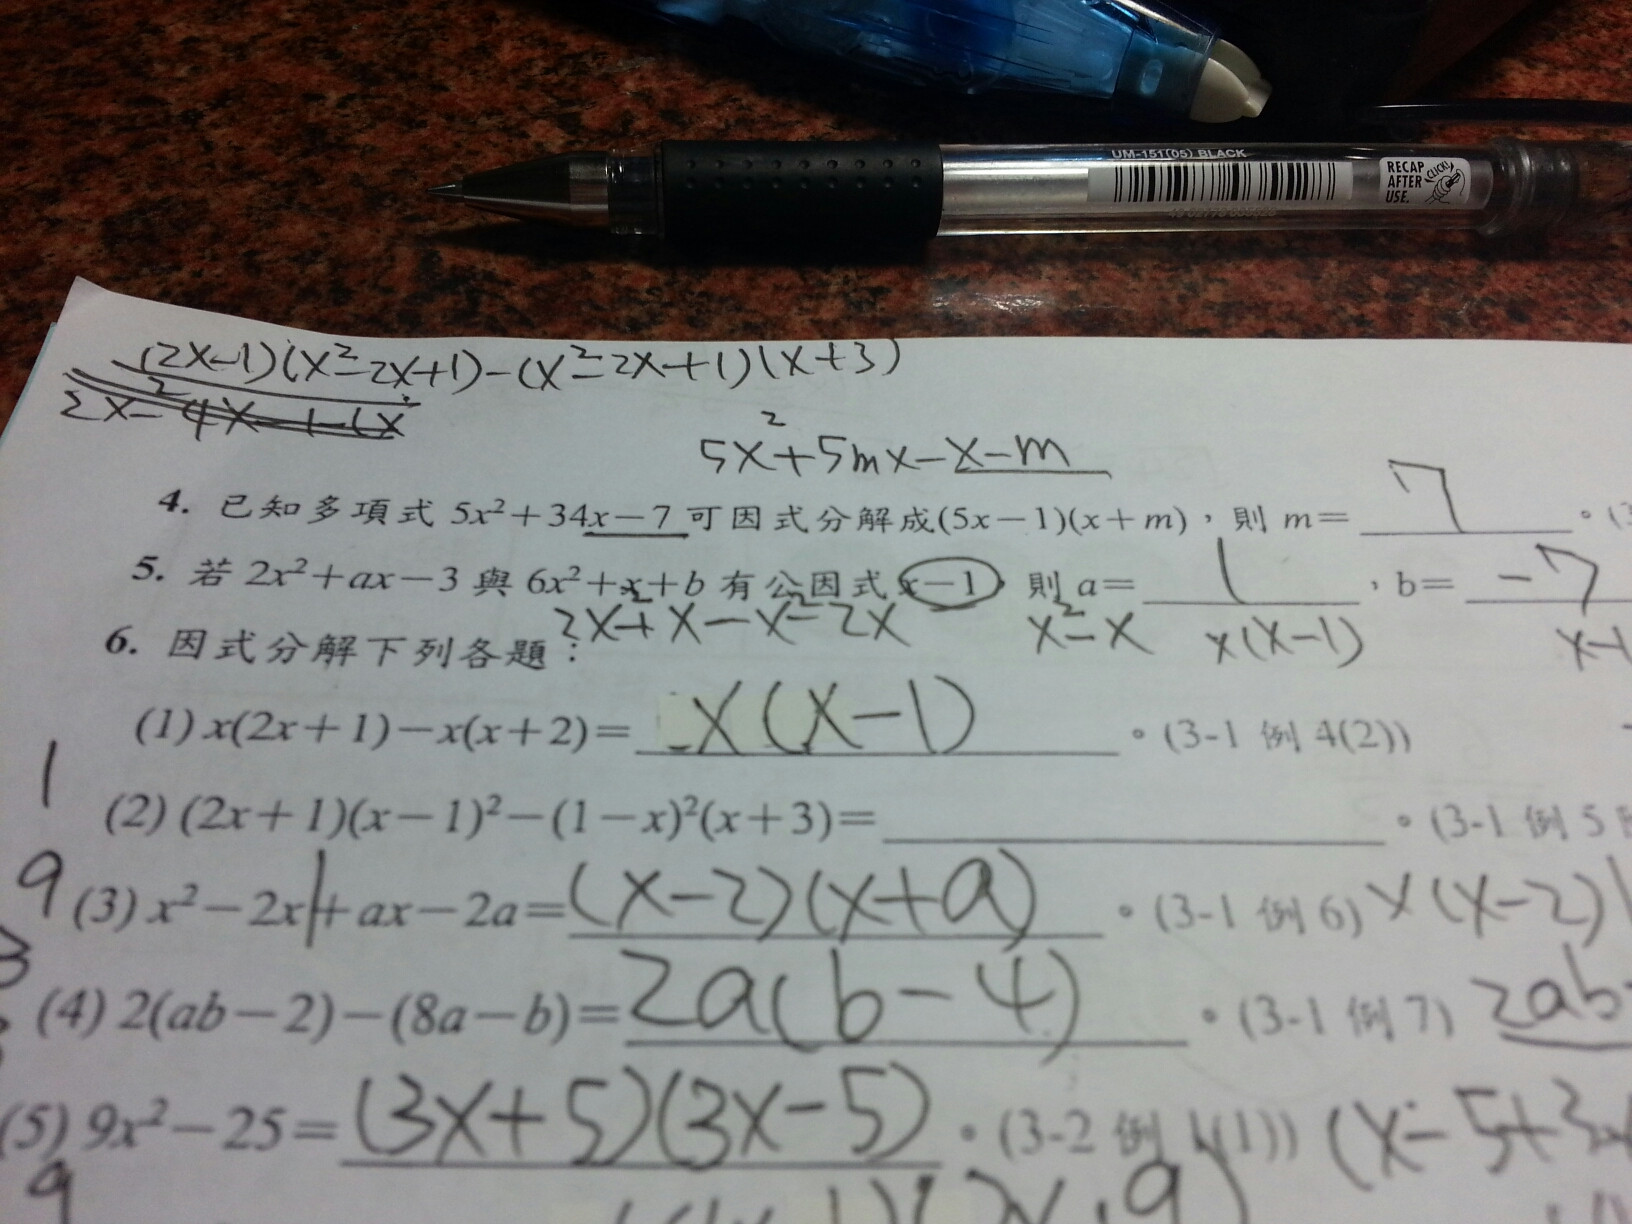 UM-151(05) BLACK
RECAP AFTER USE.
CLICK!
(2x-1)(x²-2x+1)-(x²-2x+1)(x+3)
5x²+5mx-x-m
4. 已知多項式 5x²+34x-7 可因式分解成(5x-1)(x+m),則 m= 7 。(3
5. 若 2x²+ax-3 與 6x²+x+b 有公因式 x-1,則 a= 1 ,b= -7
2x²+x-x²-2x x²-x x(x-1) x-1
6. 因式分解下列各題:
(1) x(2x+1)-x(x+2)= x(x-1) 。(3-1 例 4(2))
1
(2) (2x+1)(x-1)²-(1-x)²(x+3)= 。(3-1 例 5
9
(3) x²-2x+ax-2a= (x-2)(x+a) 。(3-1 例 6) x(x-2)
3
(4) 2(ab-2)-(8a-b)= 2a(b-4) 。(3-1 例 7) 2ab-
(5) 9x²-25= (3x+5)(3x-5) 。(3-2 例 1(1)) (x-5+3x
9